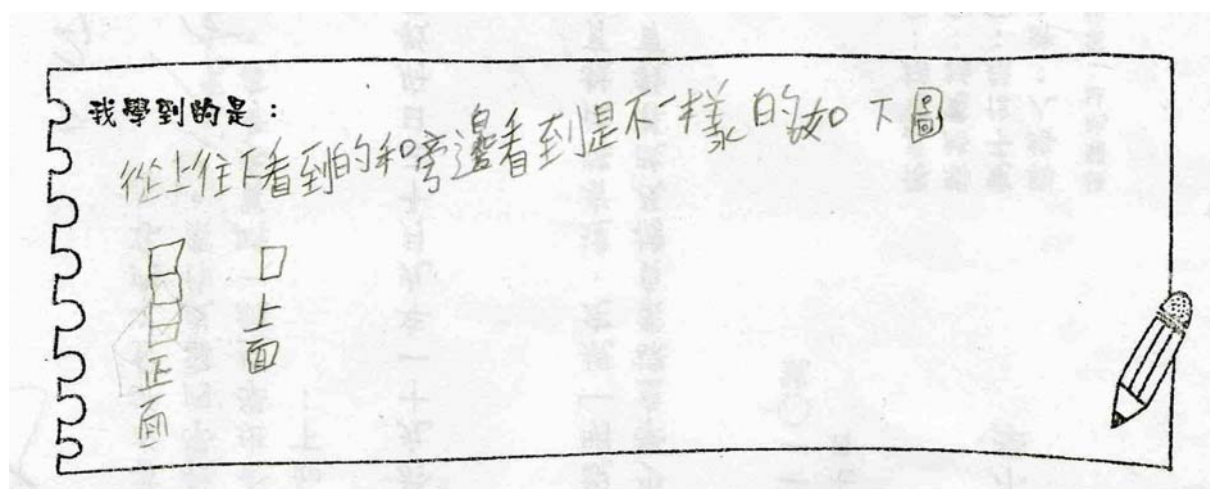 我學到的是：
從上往下看到的和旁邊看到是不一樣的如下圖
正面
上面